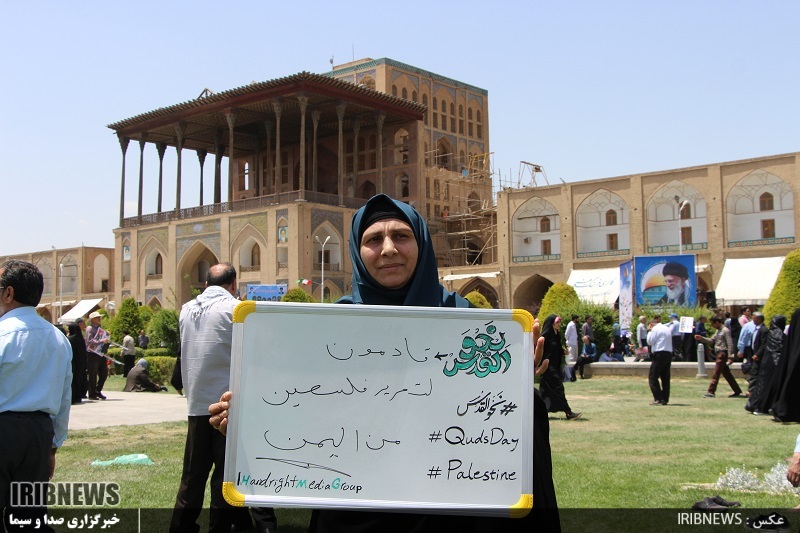 نحو القدس
قادمون
لتحرير فلسطين
من اليمن
#نحو_القدس
#QudsDay
#Palestine
HandrightMediaGroup
IRIBNEWS
خبرگزاری صدا و سیما
عکس : IRIBNEWS